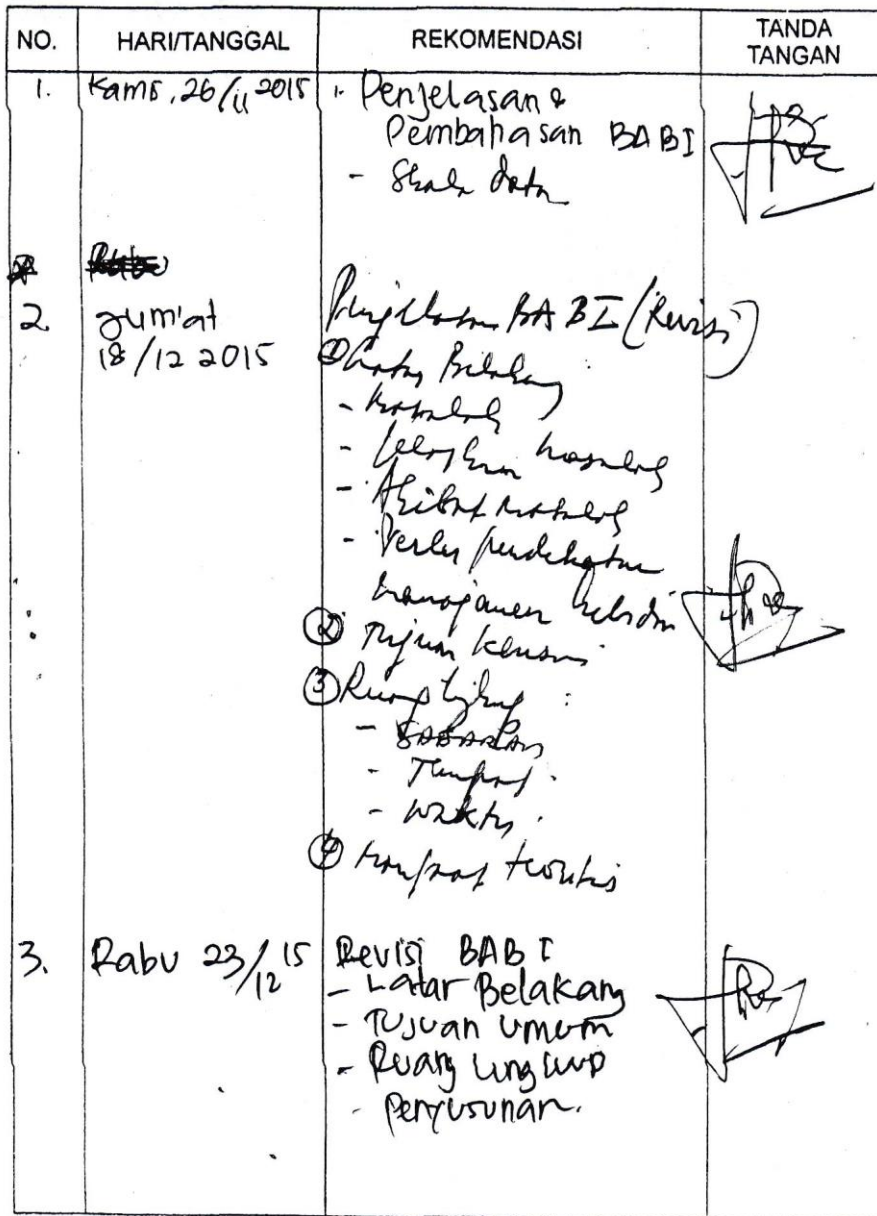 NO. HARI/TANGGAL REKOMENDASI TANDA TANGAN
1. Kamis, 26/11 2015 1. Penjelasan &
Pembahasan BAB I
- Skala data
2. Jum'at Penjelasan BAB I (Revisi)
18/12 2015 ① Latar Belakang
- Masalah
- masalah
- Akibat masalah
- Perlu pendekatan
manajemen
② Tujuan
③ Ruang Lingkup :
- SASARAN
- Tempat
- waktu
④ manfaat teoritis
3. Rabu 23/12 15 Revisi BAB I
- Latar Belakang
- Tujuan umum
- Ruang Lingkup
- Penyusunan.